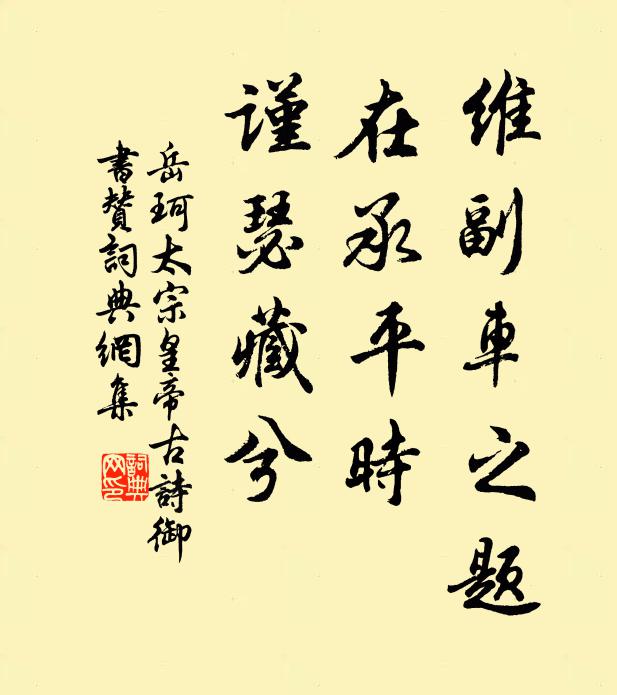 維副車之題
在承平時
謹瑟藏兮
岳珂太宗皇帝古詩御
書贊詞典網集
詞典
网印